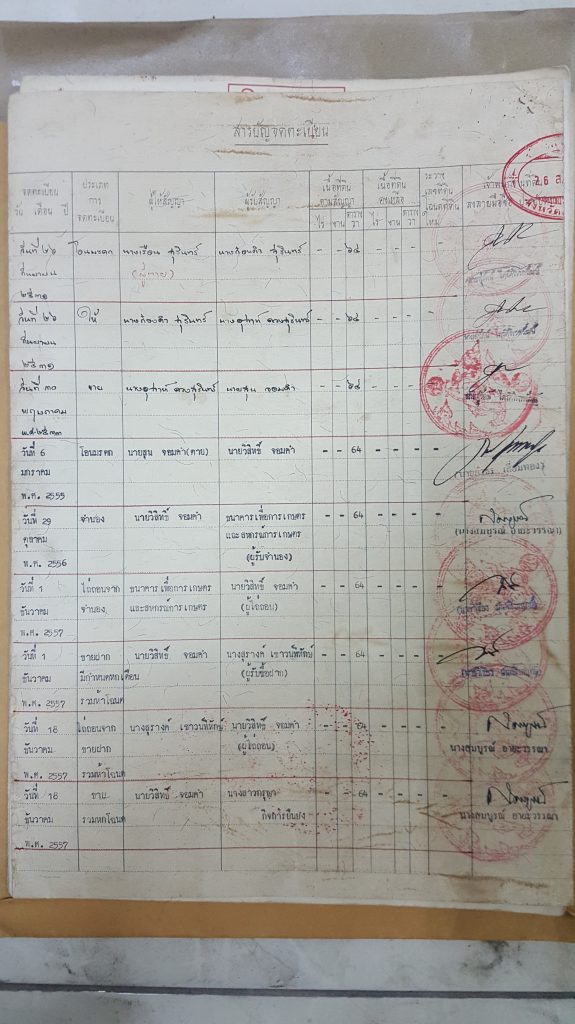 สารบัญจดทะเบียน
จดทะเบียน
วัน เดือน ปี
ประเภท
การ
จดทะเบียน
ผู้ให้สัญญา
ผู้รับสัญญา
เนื้อที่ดิน
ตามสัญญา
ไร่ งาน ตารางวา
เนื้อที่ดิน
คงเหลือ
ไร่ งาน ตารางวา
ระวาง
เลขที่ดิน
โฉนดที่ดิน
ใหม่
26 ส.
วันที่ ๒๖ โอนมรดก นางเรือน สุรินทร์ นางก๋องคำ สุรินทร์ - - ๖๔ - - - -
กันยายน (ผู้ตาย)
๒๕๓๑
วันที่ ๒๖ ให้ นางก๋องคำ สุรินทร์ - - ๖๔ - - - -
กันยายน
๒๕๓๑
วันที่ ๓๐ ขาย นายสูน จอมคำ - - ๖๔ - - - -
พฤษภาคม
วันที่ 6 โอนมรดก นายสูน จอมคำ(ตาย) นายวิสิทธิ์ จอมคำ - - 64 - - - -
มกราคม
พ.ศ. 2555
วันที่ 29 จำนอง นายวิสิทธิ์ จอมคำ ธนาคารเพื่อการเกษตร - - 64 - - - -
ตุลาคม และสหกรณ์การเกษตร (นางสมบูรณ์ อายะวรรณา)
พ.ศ. 2556 (ผู้รับจำนอง)
วันที่ 1 ไถ่ถอนจาก ธนาคารเพื่อการเกษตร นายวิสิทธิ์ จอมคำ - - 64 - - - -
ธันวาคม จำนอง และสหกรณ์การเกษตร (ผู้ไถ่ถอน)
พ.ศ. 2557
วันที่ 1 ขายฝาก นายวิสิทธิ์ จอมคำ นางสุรางค์ เชาวนพิทักษ์ - - 64 - - - -
ธันวาคม มีกำหนดหกเดือน (ผู้รับซื้อฝาก)
พ.ศ. 2557 รวมห้าโฉนด
วันที่ 18 ไถ่ถอนจาก นางสุรางค์ เชาวนพิทักษ์ นายวิสิทธิ์ จอมคำ - - 64 - - - -
ธันวาคม ขายฝาก (ผู้ไถ่ถอน) นางสมบูรณ์ อายะวรรณา
พ.ศ. 2557 รวมห้าโฉนด
วันที่ 18 ขาย นายวิสิทธิ์ จอมคำ - - 64 - - - -
ธันวาคม รวมหกโฉนด กิจการยืนยง นางสมบูรณ์ อายะวรรณา
พ.ศ. 2557